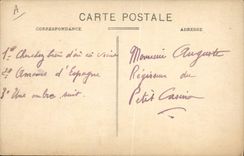 A
CARTE POSTALE
CORRESPONDANCE
ADRESSE
1º Cherchez bien d'où ça vient
2º Amours d'Espagne
3º Une ombre suit
Monsieur Auguste
Régisseur du
Petit Casino